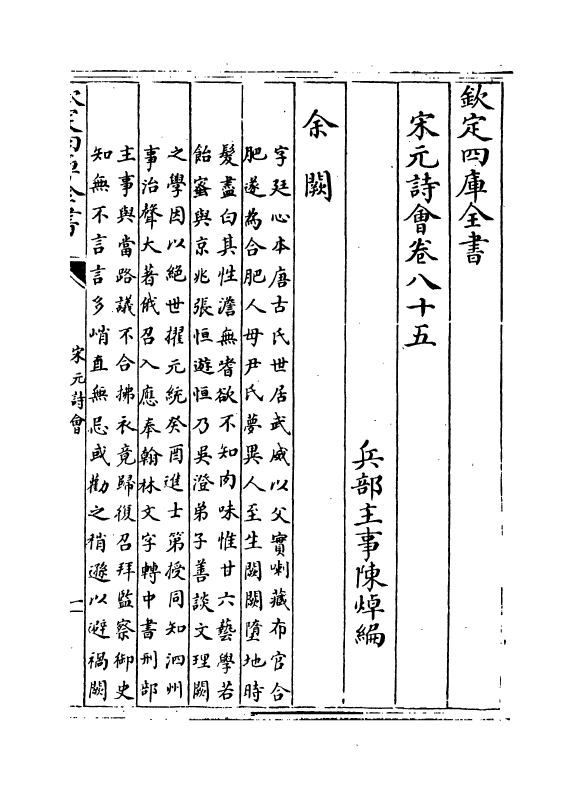 欽定四庫全書
宋元詩會卷八十五
兵部主事陳焯編
余闕
字廷心本唐古氏世居武威以父實喇藏布官合
肥遂為合肥人母尹氏夢異人至生闕闕墮地時
髮盡白其性澹無耆欲不知肉味惟甘六藝學若
飴蜜與京兆張恒遊恒乃吳澄弟子善談文理闕
之學因以絕世擢元統癸酉進士第授同知泗州
事治聲大著俄召入應奉翰林文字轉中書刑部
主事與當路議不合拂衣竟歸復召拜監察御史
知無不言言多峭直無忌或勸之稍遜以避禍闕
欽定四庫全書
宋元詩會
一